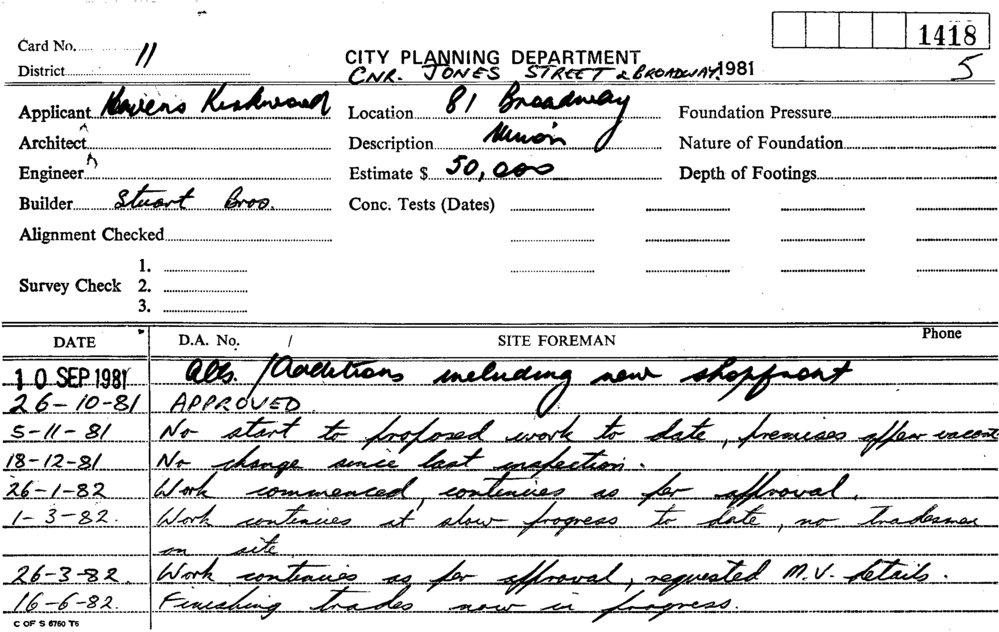 Card No. 11
1418
CITY PLANNING DEPARTMENT
District
CNR. JONES STREET & BROADWAY. 1981
5
Applicant Location 81 Broadway Foundation Pressure
Architect Description Nature of Foundation
Engineer Estimate $ 50,000 Depth of Footings
Builder Stuart Bros. Conc. Tests (Dates)
Alignment Checked
1.
Survey Check 2.
3.
DATE D.A. No. / SITE FOREMAN Phone
10 SEP 1981 Alts. / Additions including new shopfront
26-10-81 APPROVED.
5-11-81 No start to proposed work to date, premises appear vacant
18-12-81 No change since last inspection.
26-1-82 Work commenced, continues as per approval.
1-3-82. Work continues at slow progress to date, no tradesmen
on site
26-3-82. Work continues as per approval, requested M.V. details.
16-6-82. Finishing trades now in progress.
C OF S 6760 T5